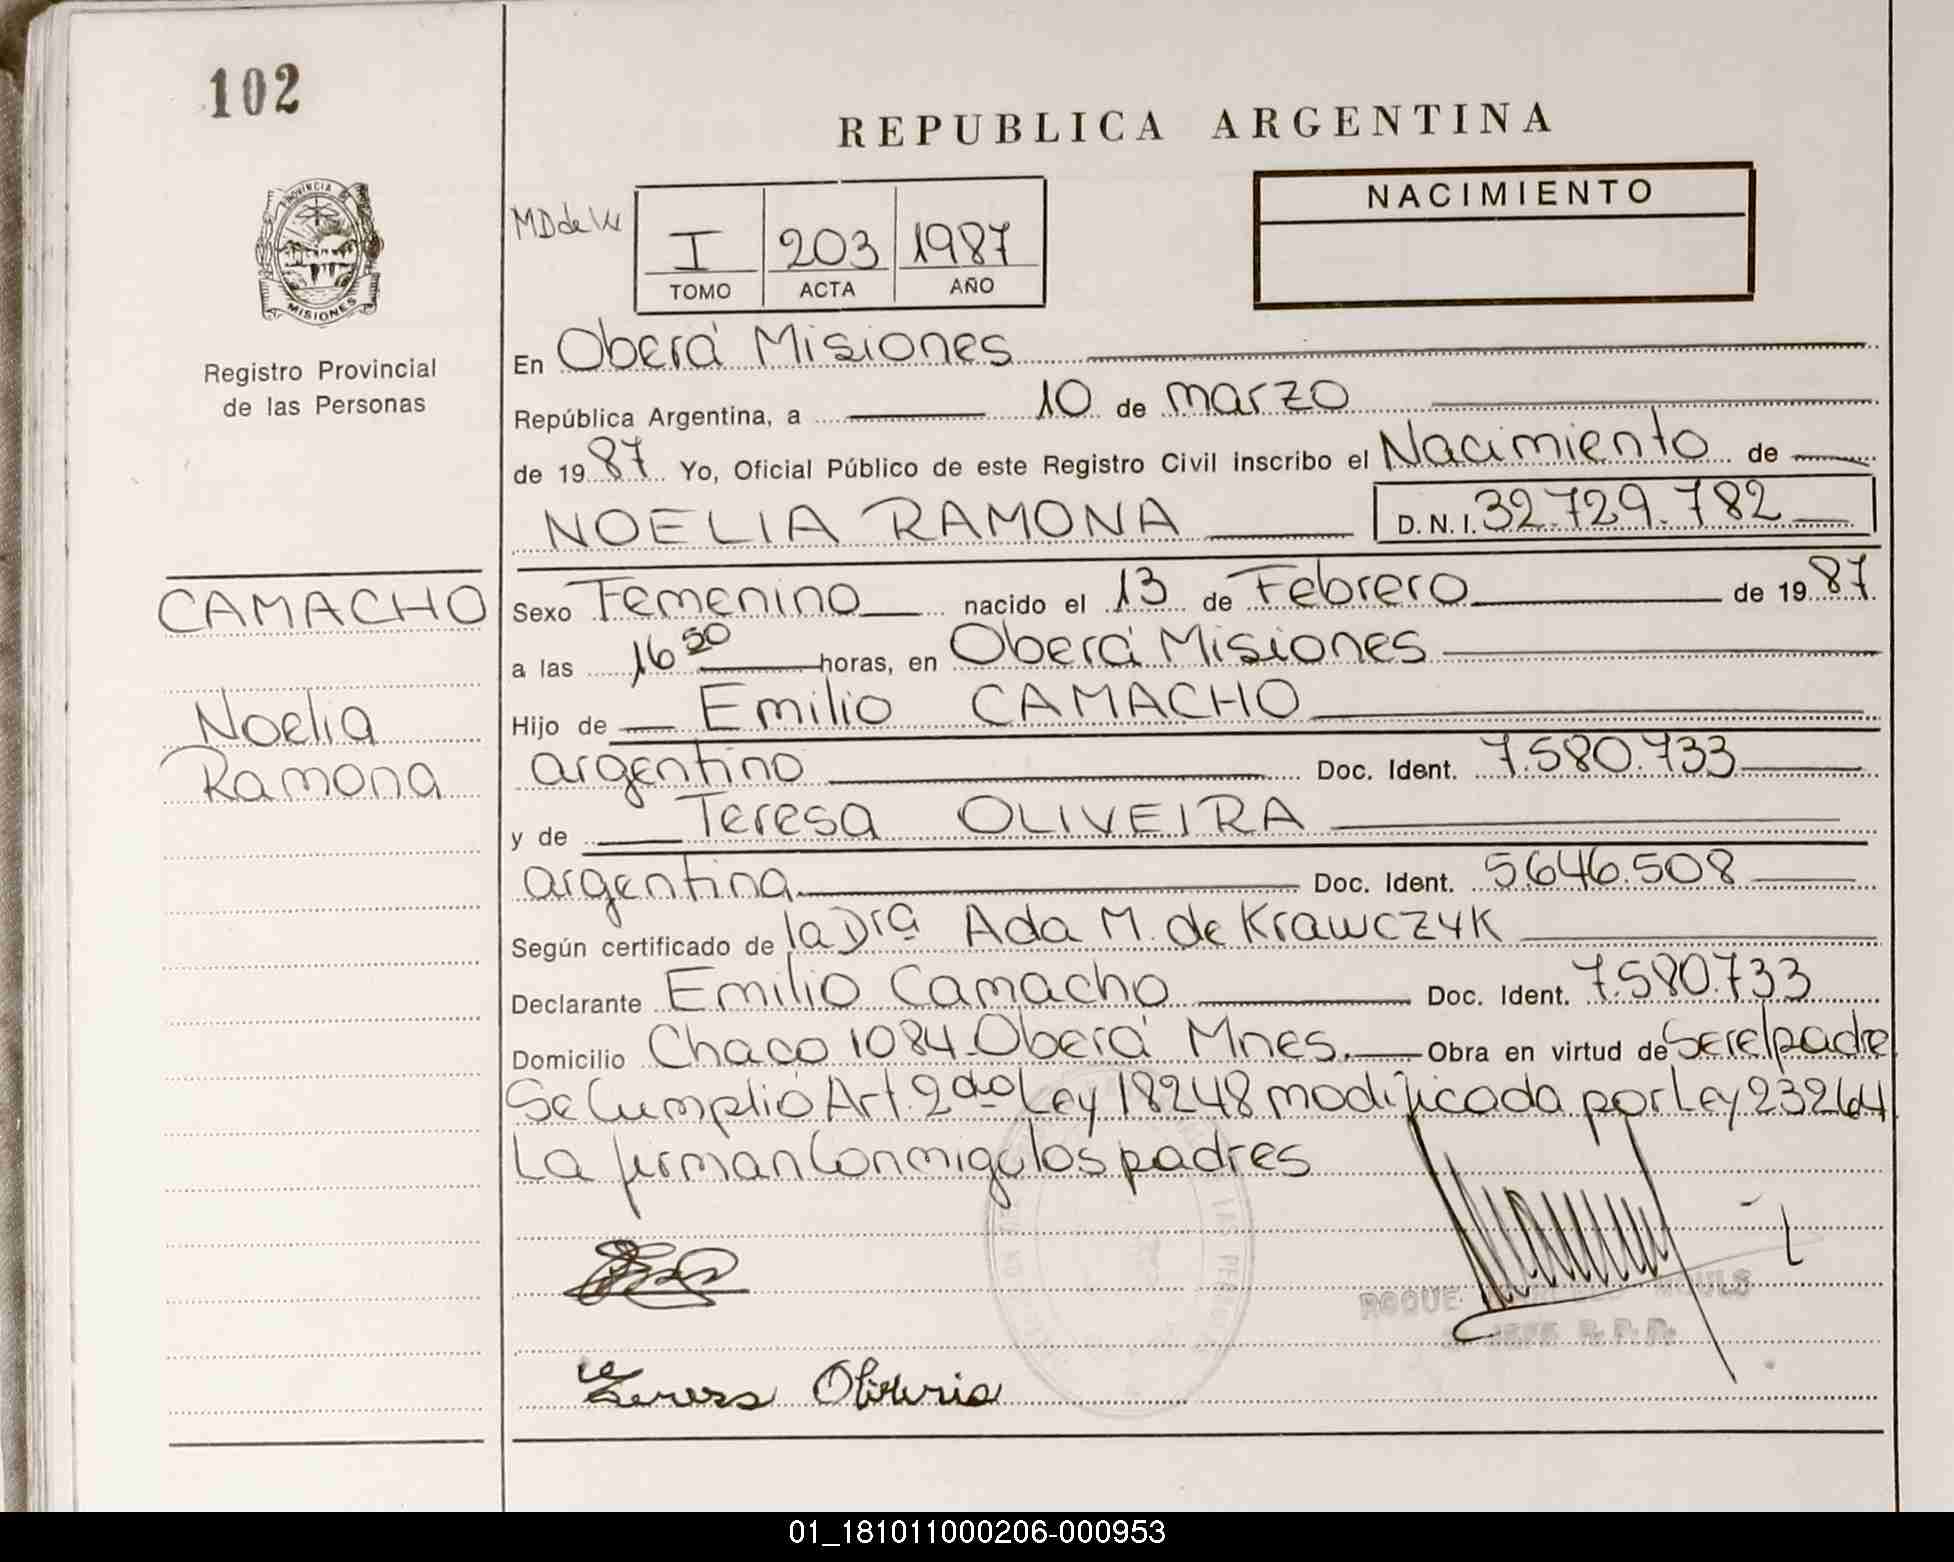 102
REPUBLICA ARGENTINA
PROVINCIA DE
MISIONES
Registro Provincial
de las Personas
MD de W
I 203 1987
TOMO ACTA AÑO
NACIMIENTO
En Oberá Misiones
República Argentina, a 10 de marzo
de 1987 Yo, Oficial Público de este Registro Civil inscribo el Nacimiento de
NOELIA RAMONA D.N.I. 32.729.782
CAMACHO
Noelia
Ramona
Sexo Femenino nacido el 13 de Febrero de 1987
a las 16 50 horas, en Oberá Misiones
Hijo de Emilio CAMACHO
argentino Doc. Ident. 7.580.733
y de Teresa OLIVEIRA
argentina Doc. Ident. 5646.508
Según certificado de la Dra Ada M. de Krawczyk
Declarante Emilio Camacho Doc. Ident. 7.580.733
Domicilio Chaco 1084 - Oberá Mnes. Obra en virtud de Ser el padre
Se Cumplió Art. 2do Ley 18248 modificada por Ley 23264
La firman Conmigo los padres
ROQUE
JEFE R.P.P.
01_181011000206-000953